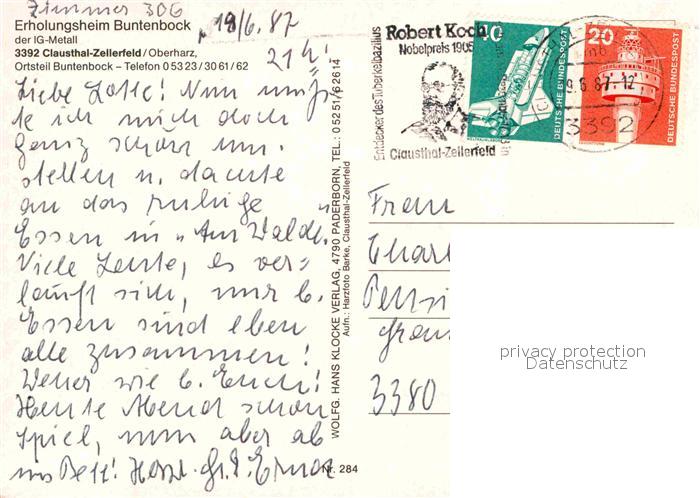 Zimmer 306
Erholungsheim Buntenbock
der IG-Metall
3392 Clausthal-Zellerfeld / Oberharz,
Ortsteil Buntenbock – Telefon 0 53 23 / 30 61 / 62
18/6. 87
21 h!
Liebe Lotte! Nun mußß-
te ich mich doch
ganz schön um-
stellen u. dachte
an das ruhige
Essen in "Am Walde".
Viele Leute, es ver-
läuft sich, nur b.
Essen sind eben
alle zusammen!
Wetter wie b. Euch!
Heute Abend schön
Spiel, nun aber ab
ins Bett! Herzl. Gr. E. Erna
WOLFG. HANS KLOCKE VERLAG, 4790 PADERBORN, TEL.: 0 52 51 / 6 26 14
Aufn.: Harzfoto Barke, Clausthal-Zellerfeld
Nr. 284
Robert Koch
Nobelpreis 1905
Entdecker des Tuberkelbazillus
Clausthal-Zellerfeld
40
DEUTSCHE BUNDESPOST
20
DEUTSCHE BUNDESPOST
9.6.87-12
3392
Frau
Charl
Pensi
3380
privacy protection
Datenschutz